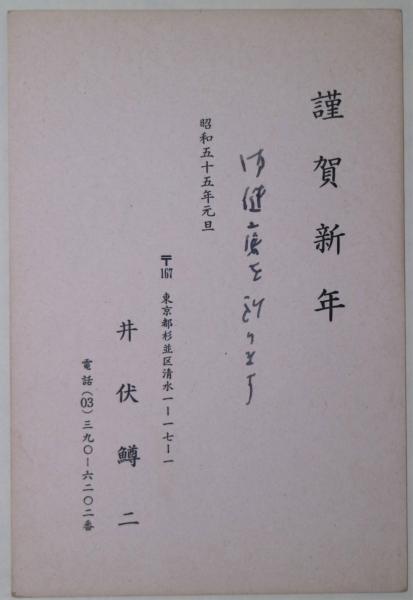 謹賀新年
御健康を祈ります
昭和五十五年元旦
〒167 東京都杉並区清水一ー一七ー一
井伏鱒二
電話(03)三九〇ー六二〇二番